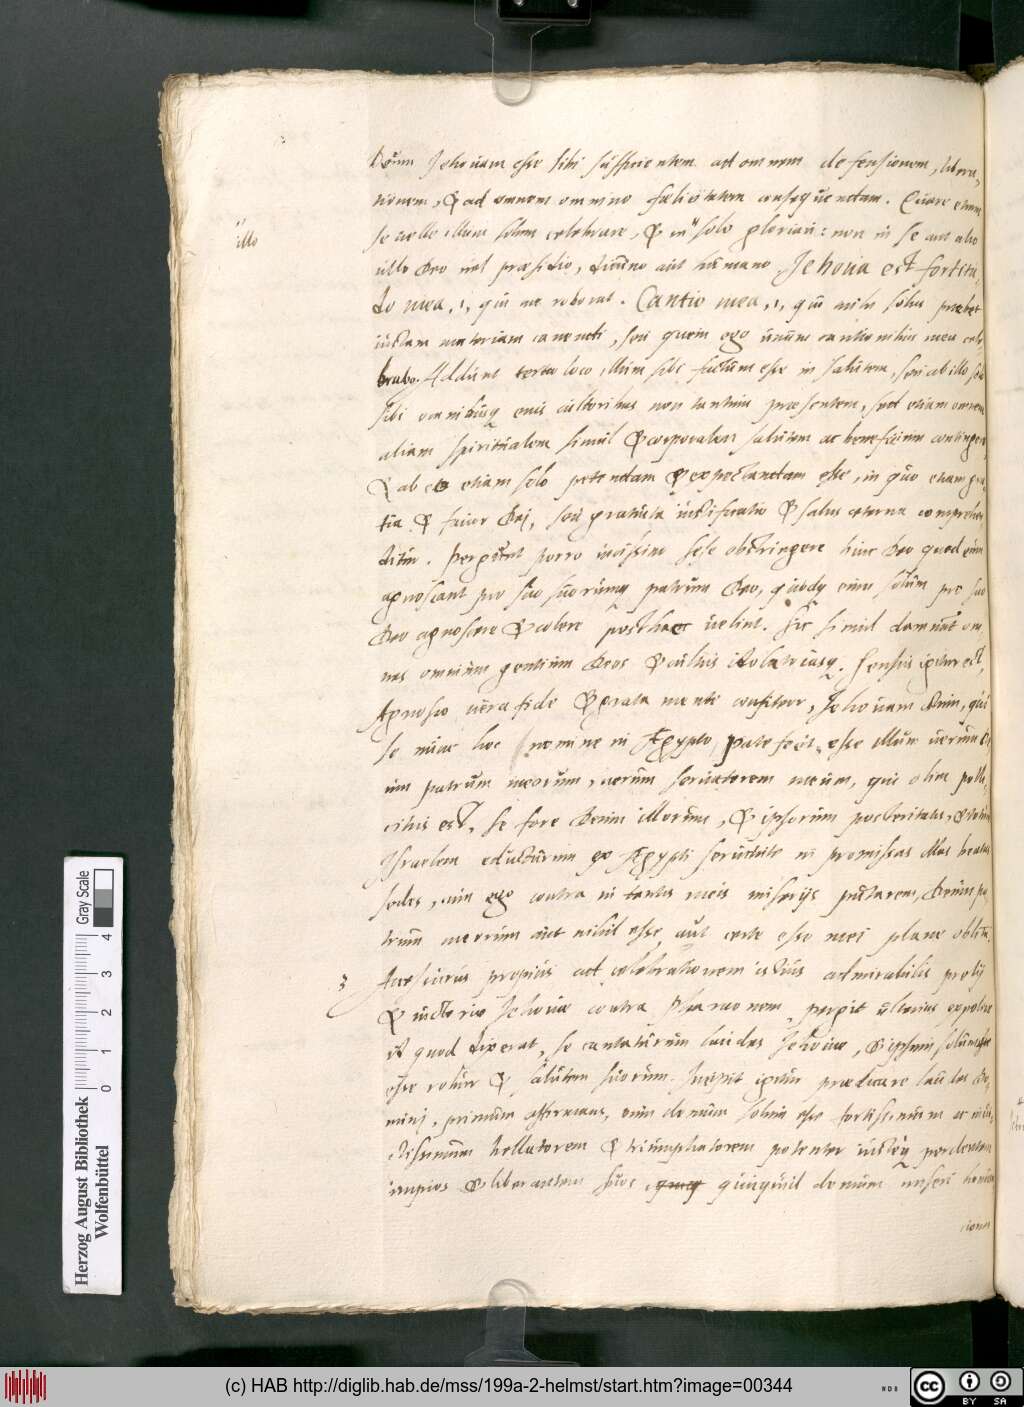 Deum Jehouam esse sibi sufficientem ad omnem defensionem, libera-
tionem, & ad omnem omnino fœlicitatem consequendam. Quare etiam
se uelle illum solum celebrare, & in " solo gloriari: non in se aut alio
"
illo
ullo Deo uel præsidio, diuino aut humano Jehoua est fortitu-
do mea, .i. qui me roborat. Cantio mea, .i. qui mihi solus præbet
iustam materiam canendi, seu quem ego unum cantionibus meis cele-
brabo. Addunt tertio loco, illum sibi factum esse in salutem, seu ab illo solo
sibi omnibusq eius cultoribus non tantum præsentem, sed etiam omnem
aliam spiritualem simul & corporalem salutem ac beneficium contingere,
& ab eo etiam solo petendam & expectandam esse, in quo etiam gra-
tia & fauor Dei, seu gratuita iustificatio & salus æterna comprehen-
ditur. Pergunt porro uicissim sese obstringere huic Deo quod eum
agnoscant pro suo suorumq patrum Deo, eum solum pro suo
Deo agnoscere & colere posthac uelint. Sic simul damnat om-
nes omnium gentium Deos & cultus idolatriasq. Sensus igitur est,
Agnosco uera fide & grata mente confiteor, Jehouam Deum, qui
se nunc hoc nomine in Ægypto patefecit, esse illum uerum De-
um patrum meorum, uerum seruatorem meum, qui olim polli-
citus est, se fore Deum illorum, & ipsorum posteritatis, & totum
Israelem educturum ex Ægypti seruitute in promissas illas beatas
sedes, cum ego contra in tantis meis miserijs putarem, Deum pa-
trum meorum aut nihil esse, aut certe esse mei plane oblitum.
3 Accessurus propius ad celebrationem istius admirabilis prelij
& uictoriæ Jehouæ contra Pharaonem, pergit ulterius exponere
id quod dixerat, se cantaturum laudes Jehouæ, & ipsum solum suum
esse robur & salutem suorum. Incipit igitur prædicare laudes Do-
mini, primum affirmans, eum demum solum esse fortissimum ac inui-
ctissimum bellatorem & triumphatorem potenter iusteq perdentem
impios & liberantem suos, quicquid demum miseri homin
ciones
Herzog August Bibliothek
Wolfenbüttel
Gray Scale
0 1 2 3 4
(c) HAB http://diglib.hab.de/mss/199a-2-helmst/start.htm?image=00344
cc BY SA